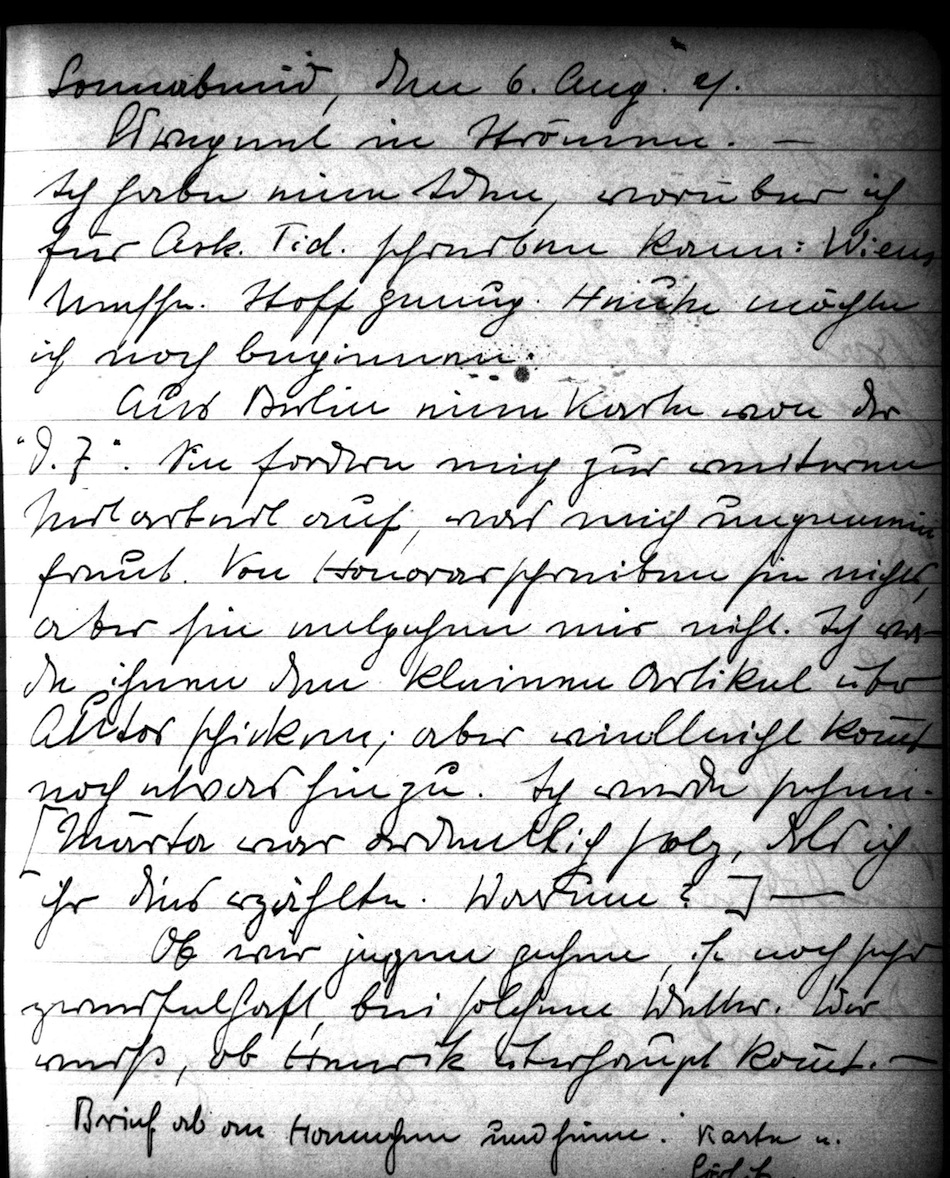 Sonnabend, den 6. Aug. 21.
Es regnet in Strömen. —
Ich habe eine Idee, worüber ich
für Ark. Tid. schreiben kann: Wiens
Messe. Stoff genug. Heute möchte
ich noch beginnen.
Aus Berlin eine Karte von der
"D. Z". Sie fordern mich zur weiteren
Mitarbeit auf, was mich ungemein
freut. Von Honorar schreiben sie nichts,
aber sie entgehen mir nicht. Ich wer-
de ihnen den kleinen Artikel über
schicken; aber vielleicht komt
noch etwas hinzu. Ich werde sehen.
[Märta war ordentlich stolz, als ich
ihr dies erzählte. Warum? ] —
Ob wir jagen gehen, ist noch sehr
zweifelhaft, bei solchem Wetter. Wer
weiß, ob Henrik überhaupt komt. —
Brief ab an Karte u.